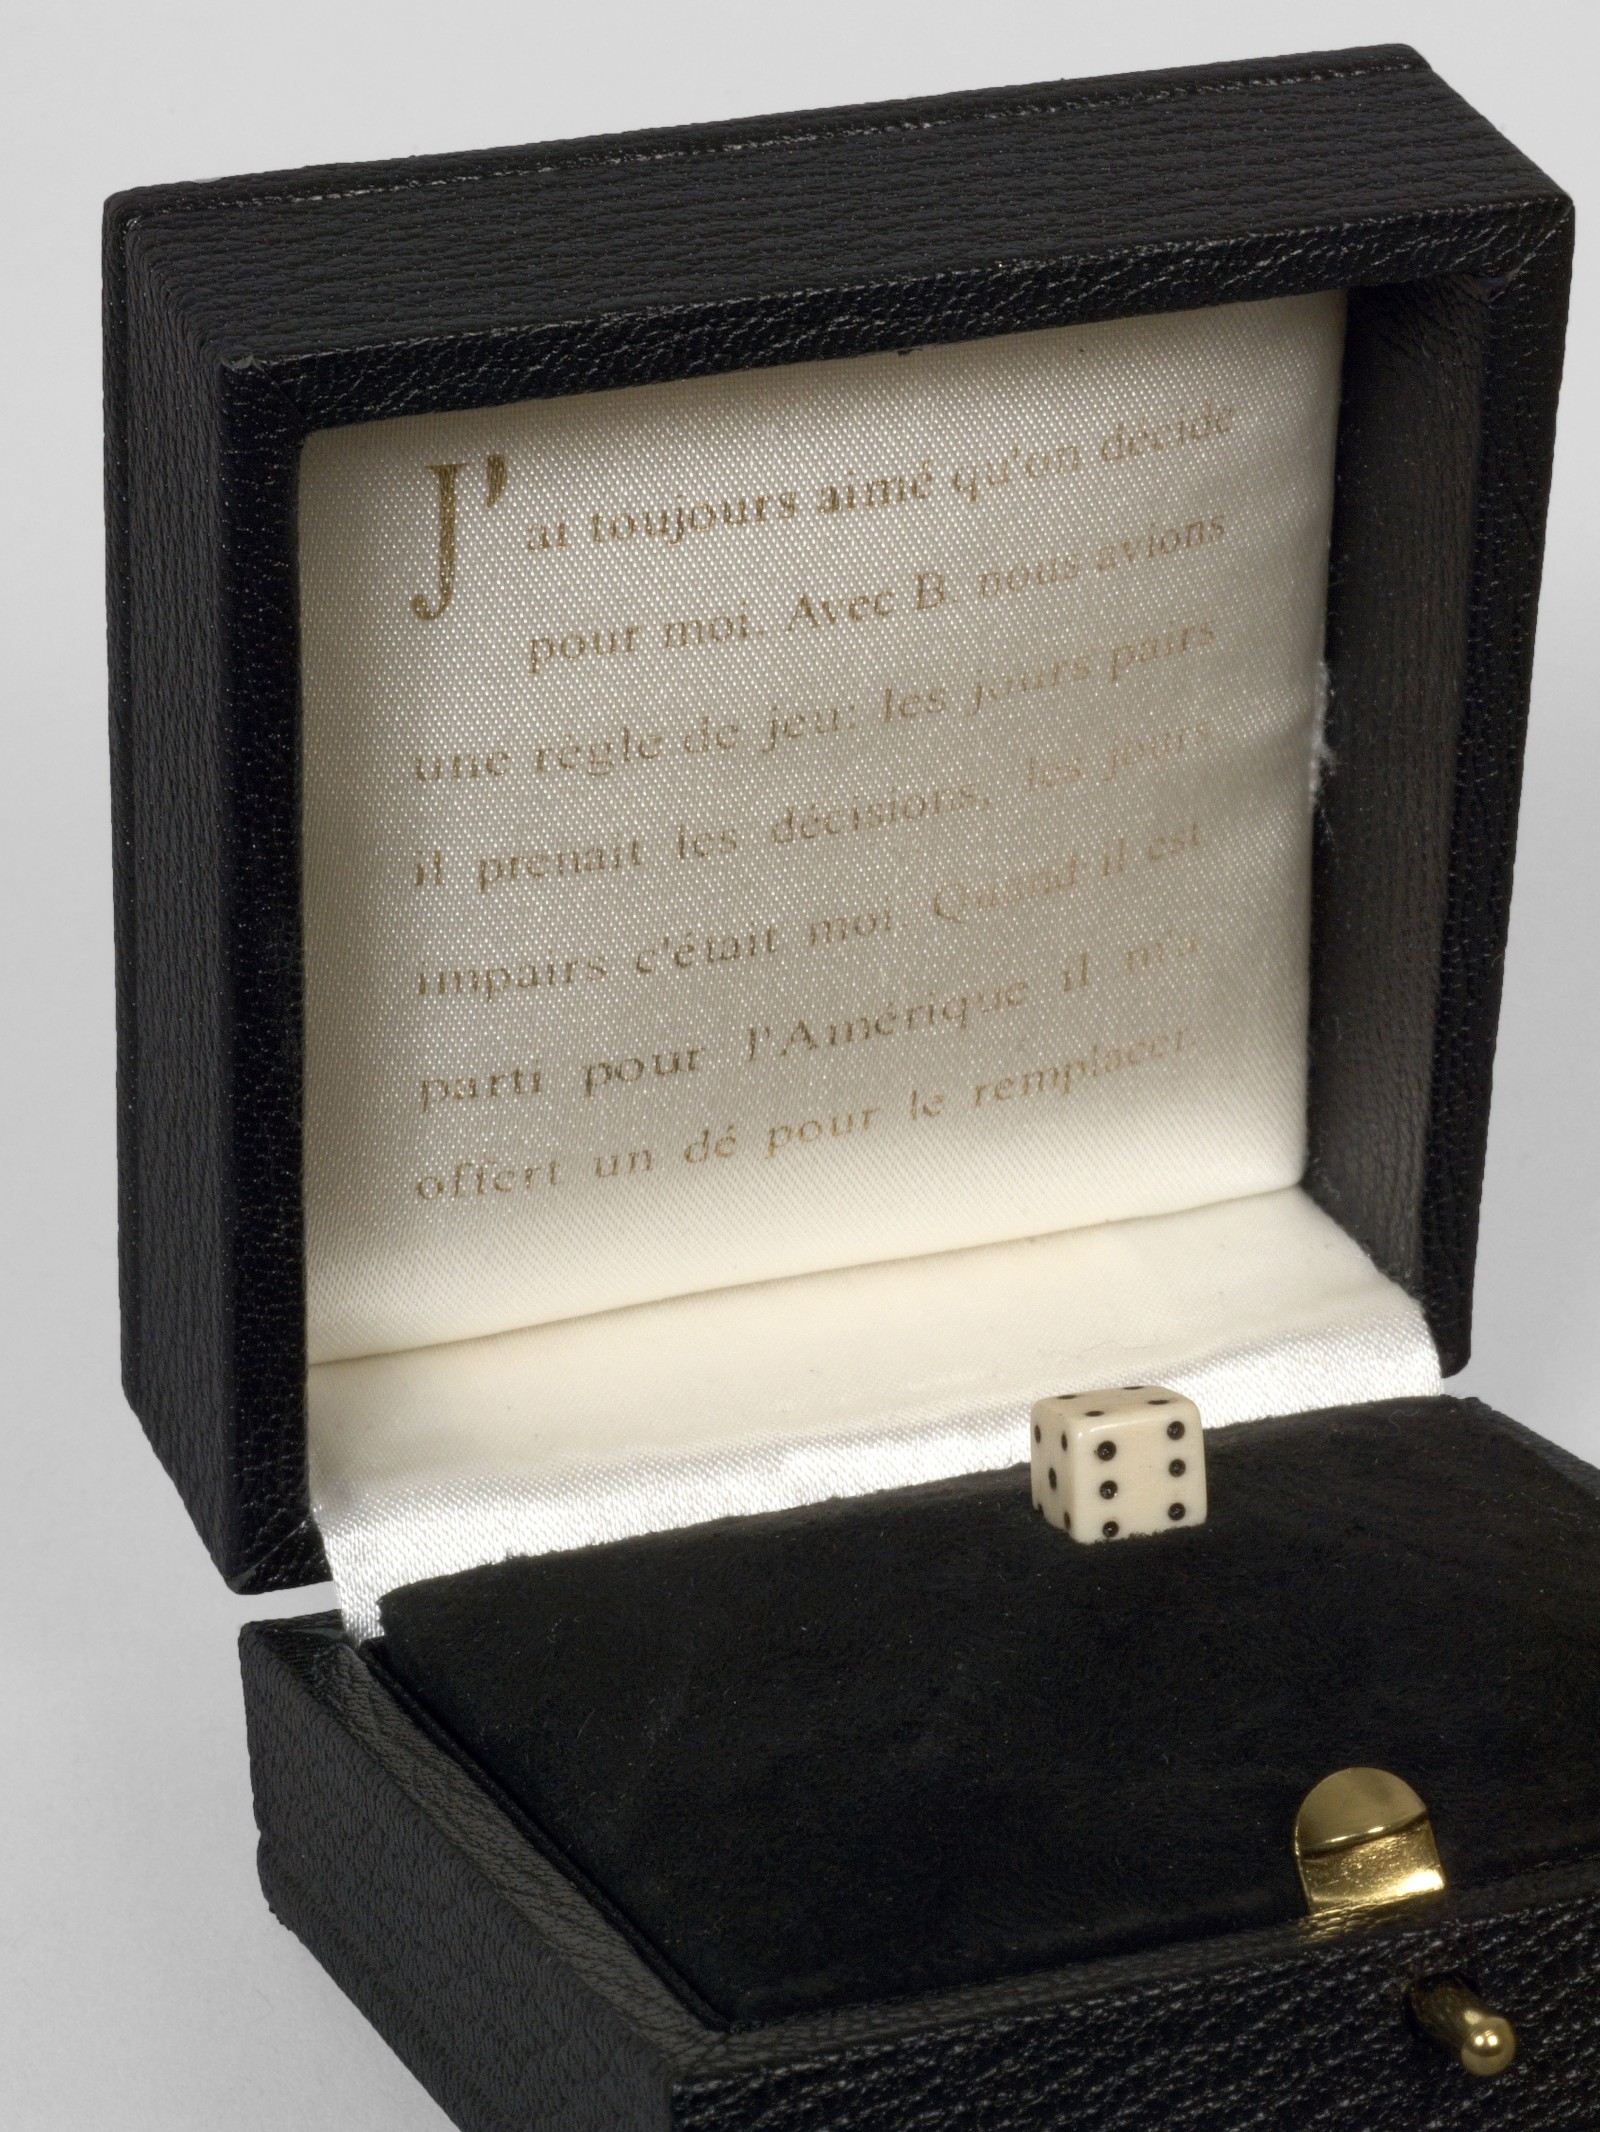 J'ai toujours aimé qu'on décide
pour moi. Avec B. nous avions
une règle de jeu: les jours pairs
il prenait les décisions, les jours
impairs c'était moi. Quand il est
parti pour l'Amérique il m'a
offert un dé pour le remplacer.